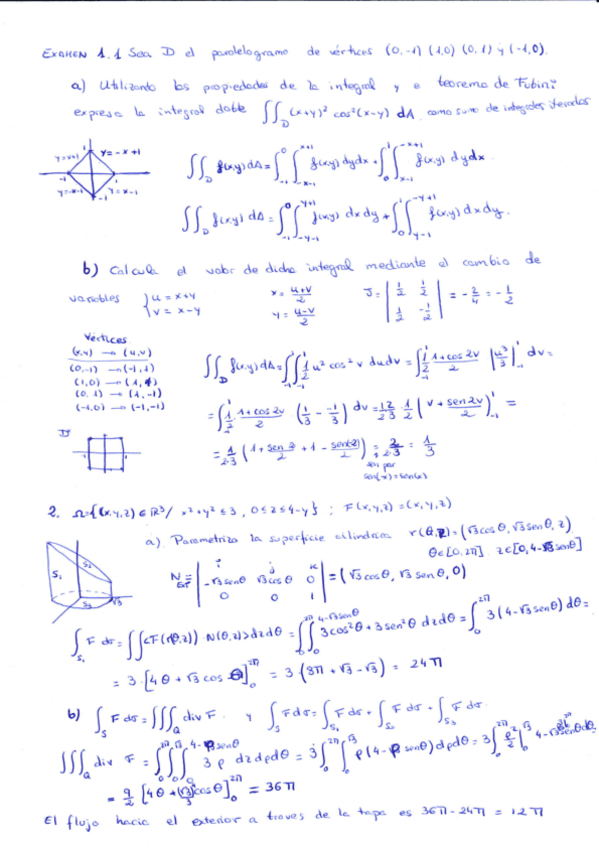 EXAMEN 1.1 Sea D el paralelogramo de vértices (0,-1) (1,0) (0,1) y (-1,0).
a) Utilizando las propiedades de la integral y e teorema de Fubini
expresa la integral doble ∫∫_D (x+y)² cos²(x-y) dA, como suma de integrales iteradas
y=x+1 y=-x+1
y=-x-1 y=x-1
∫∫_D f(x,y)dA = ∫_{-1}^{0} ∫_{-x-1}^{x+1} f(x,y) dydx + ∫_0^1 ∫_{x-1}^{-x+1} f(x,y) dydx.
∫∫_D f(x,y) dA = ∫_{-1}^{0} ∫_{-y-1}^{y+1} f(x,y) dx dy + ∫_0^1 ∫_{y-1}^{-y+1} f(x,y) dx dy.
b) Calcula el valor de dicha integral mediante el cambio de
variables { u = x+y v = x-y x = (u+v)/2 y = (u-v)/2 J = | 1/2 1/2 ; 1/2 -1/2 | = -2/4 = -1/2
Vértices
(x,y) → (u,v)
(0,-1) → (-1,1)
(1,0) → (1,1)
(0,1) → (1,-1)
(-1,0) → (-1,-1)
∫∫_D f(x,y) dA = ∫_{-1}^1 ∫_{-1}^1 1/2 u² cos² v dudv = ∫_{-1}^1 1/2 (1+cos2v)/2 [u³/3]_{-1}^1 dv =
= ∫_{-1}^1 1/2 (1+cos2v)/2 (1/3 - -1/3) dv = 1·2/2·3 · 1/2 (v + sen2v/2)_{-1}^1 =
D'
= 1/2·3 (1 + sen2/2 + 1 - sen(-2)/2) = 2/2·3 = 1/3
sen par
sen(-x) = sen(x)
2. Ω = {(x,y,z) ∈ R³ / x²+y² ≤ 3, 0 ≤ z ≤ 4-y} ; F(x,y,z) = (x,y,z)
a) Parametriza la superficie cilíndrica r(θ,z) = (√3cosθ, √3senθ, z)
θ ∈ [0,2π] z ∈ [0,4-√3senθ]
S₁ S₂ S₃ √3
N = | i j k ; -√3senθ √3cosθ 0 ; 0 0 1 | = (√3cosθ, √3senθ, 0)
∫_{S₁} F dσ = ∫∫ <F(r(θ,z)) · N(θ,z)> dzdθ = ∫_0^{2π} ∫_0^{4-√3senθ} 3cos²θ + 3sen²θ dzdθ = ∫_0^{2π} 3(4-√3senθ) dθ =
= 3·[4θ + √3cosθ]_0^{2π} = 3·(8π + √3 - √3) = 24π
b) ∫_S F dσ = ∫∫∫_Q div F. y ∫_S F dσ = ∫_{S₁} F dσ + ∫_{S₂} F dσ + ∫_{S₃} F dσ
∫∫∫_Q div F = ∫_0^{2π} ∫_0^{√3} ∫_0^{4-ρsenθ} 3ρ dzdρdθ = 3∫_0^{2π} ∫_0^{√3} ρ(4-ρsenθ) dρdθ = 3∫_0^{2π} [ρ²/2]_0^{√3} 4-√3senθ dθ
= 9/2 [4θ + (√3)cosθ]_0^{2π} = 36π
El flujo hacia el exterior a traves de la tapa es 36π - 24π = 12π